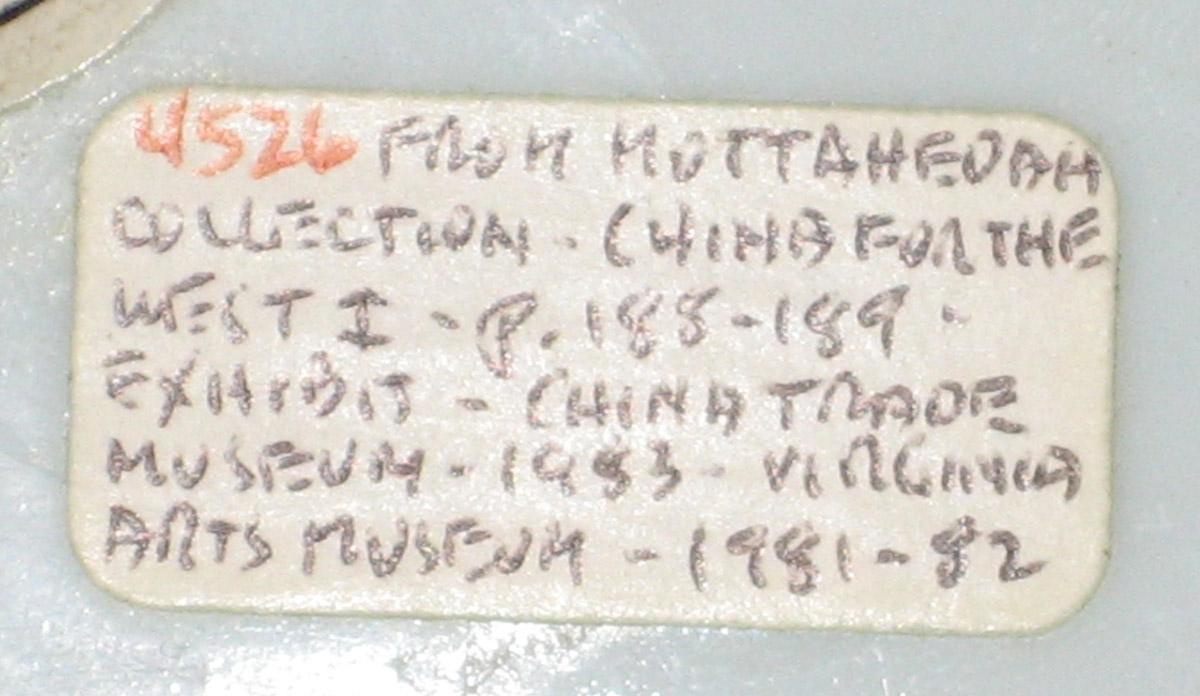 4526 FROM MOTTAHEDAH
COLLECTION - CHINA FOR THE
WEST I - P. 188-189 -
EXHIBIT - CHINA TRADE
MUSEUM - 1983 - VIRGINIA
ARTS MUSEUM - 1981-82